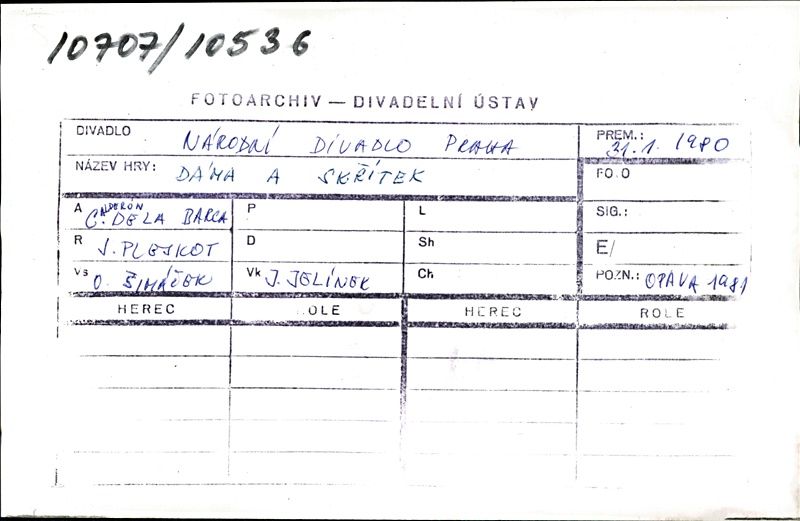 10707/10536
FOTOARCHIV — DIVADELNÍ ÚSTAV
DIVADLO NÁRODNÍ DIVADLO PRAHA
PREM.: 31.1. 1980
NÁZEV HRY: DÁMA A SKŘÍTEK
FO.O
A C. CALDERÓN DE LA BARCA
P
L
SIG.:
R J. PLESKOT
D
Sh
E/
Vs O. ŠIMÁČEK
Vk J. JELÍNEK
Ch
POZN.: OPAVA 1981
HEREC .OLE HEREC ROLE